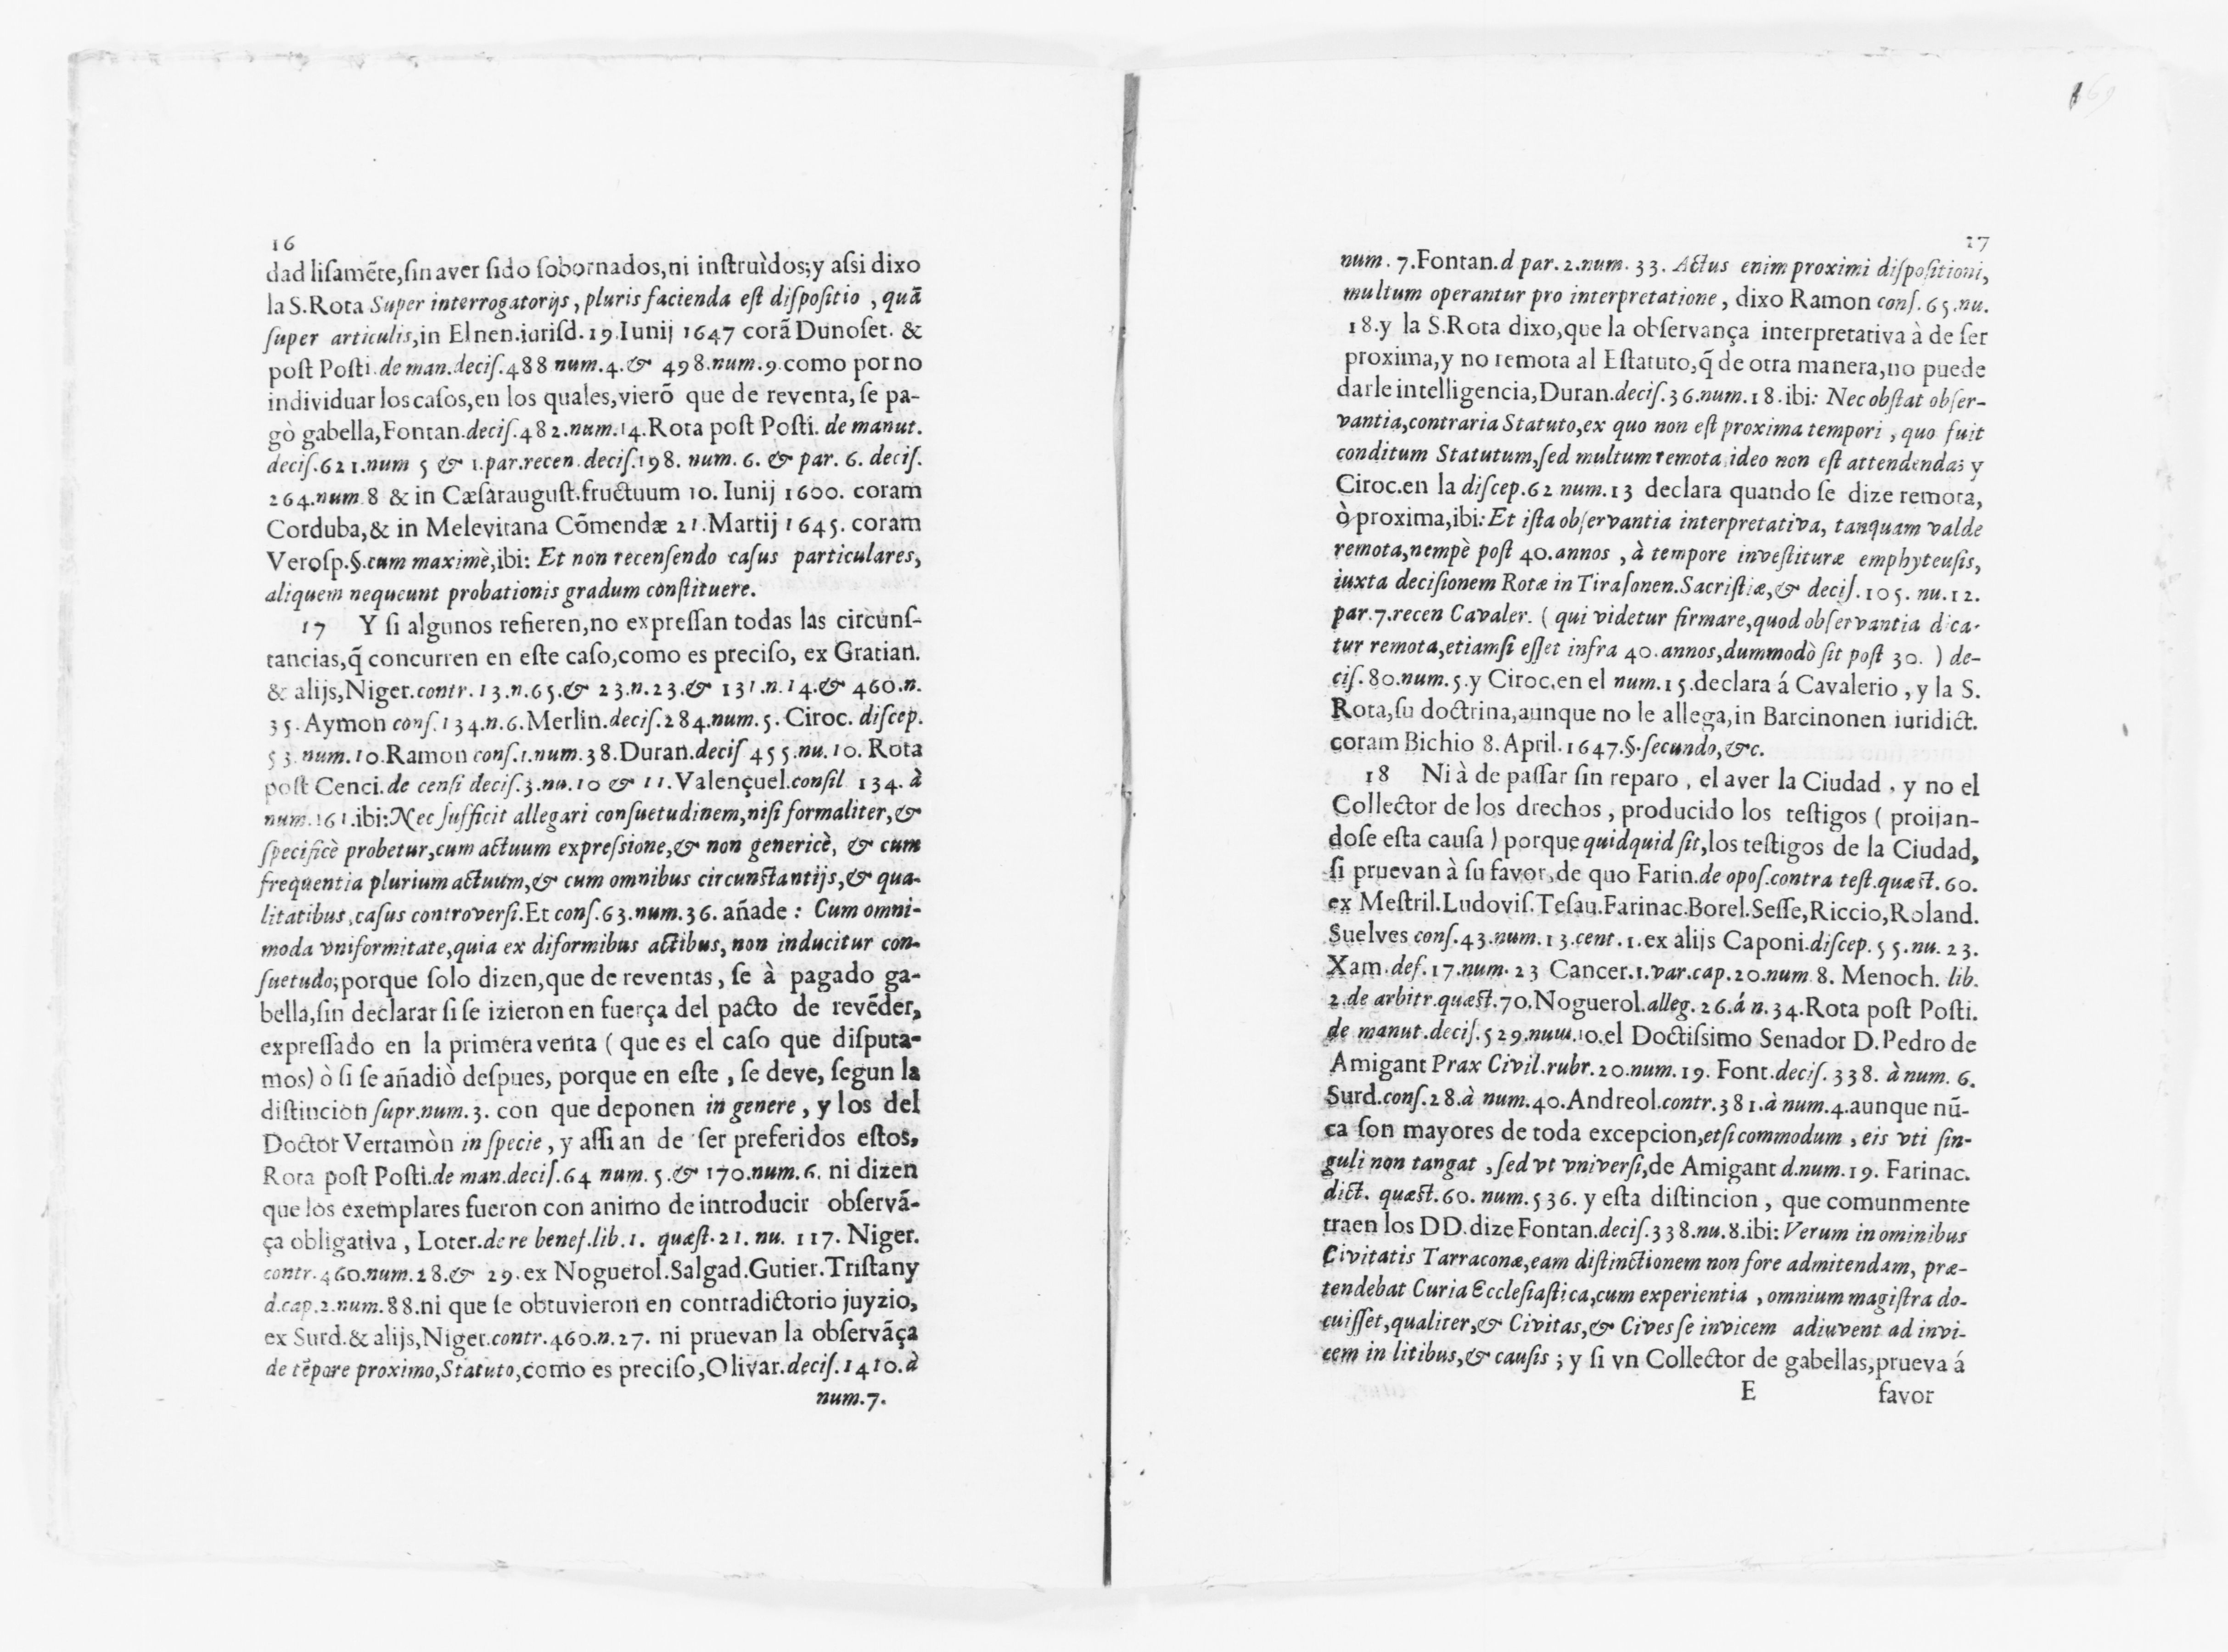 16
dad lisamẽte,sin aver sido sobornados,ni instruìdos;y assi dixo
la S.Rota Super interrogatorijs, pluris facienda est dispositio, quã
super articulis,in Elnen.iurisd.19.Iunij 1647 corã Dunoset. &
post Posti.de man.decis.488 num.4.& 498.num.9.como por no
individuar los casos,en los quales,vierõ que de reventa, se pa-
gò gabella,Fontan.decis.482.num.14.Rota post Posti. de manut.
decis.621.num 5 & 1.par.recen.decis.198. num. 6. & par. 6. decis.
264.num 8 & in Cæsaraugust.fructuum 10. Iunij 1600. coram
Corduba,& in Melevitana Cõmendæ 21.Martij 1645. coram
Verosp.§.cum maximè,ibi: Et non recensendo casus particulares,
aliquem nequeunt probationis gradum constituere.
17 Y si algunos refieren,no expressan todas las circuns-
tancias,q̃ concurren en este caso,como es preciso, ex Gratian.
& alijs,Niger.contr.13.n.65.& 23.n.23.& 131.n.14.& 460.n.
35.Aymon cons.134.n.6.Merlin.decis.284.num.5. Ciroc. discep.
53.num.10.Ramon cons.1.num.38.Duran.decis 455.nu.10. Rota
post Cenci.de censi decis.3.nu.10 & 11.Valençuel.consil 134. à
num.161.ibi:Nec sufficit allegari consuetudinem,nisi formaliter,&
specificè probetur,cum actuum expressione,& non genericè, & cum
frequentia plurium actuum,& cum omnibus circunstantijs,& qua-
litatibus,casus controversi.Et cons.63.num.36. añade: Cum omni-
moda vniformitate,quia ex diformibus actibus, non inducitur con-
suetudo;porque solo dizen,que de reventas, se à pagado ga-
bella,sin declarar si se izieron en fuerça del pacto de revẽder,
expressado en la primera venta ( que es el caso que disputa-
mos) ò si se añadiò despues, porque en este, se deve, segun la
distincion supr.num.3. con que deponen in genere, y los del
Doctor Vertamòn in specie, y assi an de ser preferidos estos,
Rota post Posti.de man.decis.64 num. 5.& 170.num.6. ni dizen
que los exemplares fueron con animo de introducir observã-
ça obligativa, Loter.de re benef.lib.1. quæst.21. nu. 117. Niger.
contr.460.num.28.& 29.ex Noguerol.Salgad.Gutier.Tristany
d.cap.2.num.88.ni que se obtuvieron en contradictorio juyzio,
ex Surd.& alijs,Niger.contr.460.n.27. ni pruevan la observãça
de tẽpore proximo,Statuto,como es preciso,Olivar.decis.1410.à
num.7.
17
num. 7.Fontan.d par.2.num. 33. Actus enim proximi dispositioni,
multum operantur pro interpretatione, dixo Ramon cons.65.nu.
18.y la S.Rota dixo,que la observança interpretativa à de ser
proxima,y no remota al Estatuto,q̃ de otra manera,no puede
darle intelligencia,Duran.decis.36.num.18.ibi: Nec obstat obser-
vantia,contraria Statuto,ex quo non est proxima tempori, quo fuit
conditum Statutum,sed multum remota ideo non est attendenda; y
Ciroc.en la discep.62 num.13 declara quando se dize remota,
ò proxima,ibi:Et ista observantia interpretativa, tanquam valde
remota,nempè post 40.annos, à tempore investituræ emphyteusis,
iuxta decisionem Rotæ in Tirasonen.Sacristiæ,& decis.105. nu.12.
par.7.recen Cavaler. ( qui videtur firmare,quod observantia dica-
tur remota,etiamsi esset infra 40.annos,dummodò sit post 30. ) de-
cis.80.num.5.y Ciroc.en el num.15.declara á Cavalerio, y la S.
Rota,su doctrina,aunque no le allega,in Barcinonen iuridict.
coram Bichio 8.April.1647.§.secundo,&c.
18 Ni à de passar sin reparo, el aver la Ciudad, y no el
Collector de los drechos, producido los testigos ( proijan-
dose esta causa) porque quidquid sit,los testigos de la Ciudad,
si pruevan à su favor,de quo Farin.de opos.contra test.quæst.60.
ex Mestril.Ludovis.Tesau.Farinac.Borel.Sesse,Riccio,Roland.
Suelves cons.43.num.13.cent.1.ex alijs Caponi.discep.55.nu.23.
Xam.def.17.num.23 Cancer.1.var.cap.20.num 8. Menoch. lib.
2.de arbitr.quæst.70.Noguerol.alleg.26.á n.34.Rota post Posti.
de manut.decis.529.num.10.el Doctissimo Senador D.Pedro de
Amigant Prax Civil.rubr.20.num.19. Font.decis.338. à num. 6.
Surd.cons.28.à num.40.Andreol.contr.381.à num.4.aunque nũ-
ca son mayores de toda excepcion,etsi commodum, eis vti sin-
guli non tangat, sed vt vniversi,de Amigant d.num.19. Farinac.
dict. quæst.60. num.536. y esta distincion, que comunmente
traen los DD.dize Fontan.decis.338.nu.8.ibi:Verum in ominibus
Civitatis Tarraconæ,eam distinctionem non fore admitendam, præ-
tendebat Curia Ecclesiastica,cum experientia, omnium magistra do-
cuisset,qualiter,& Civitas,& Cives se invicem adiuvent ad invi-
cem in litibus,& causis; y si vn Collector de gabellas,prueva á
E favor